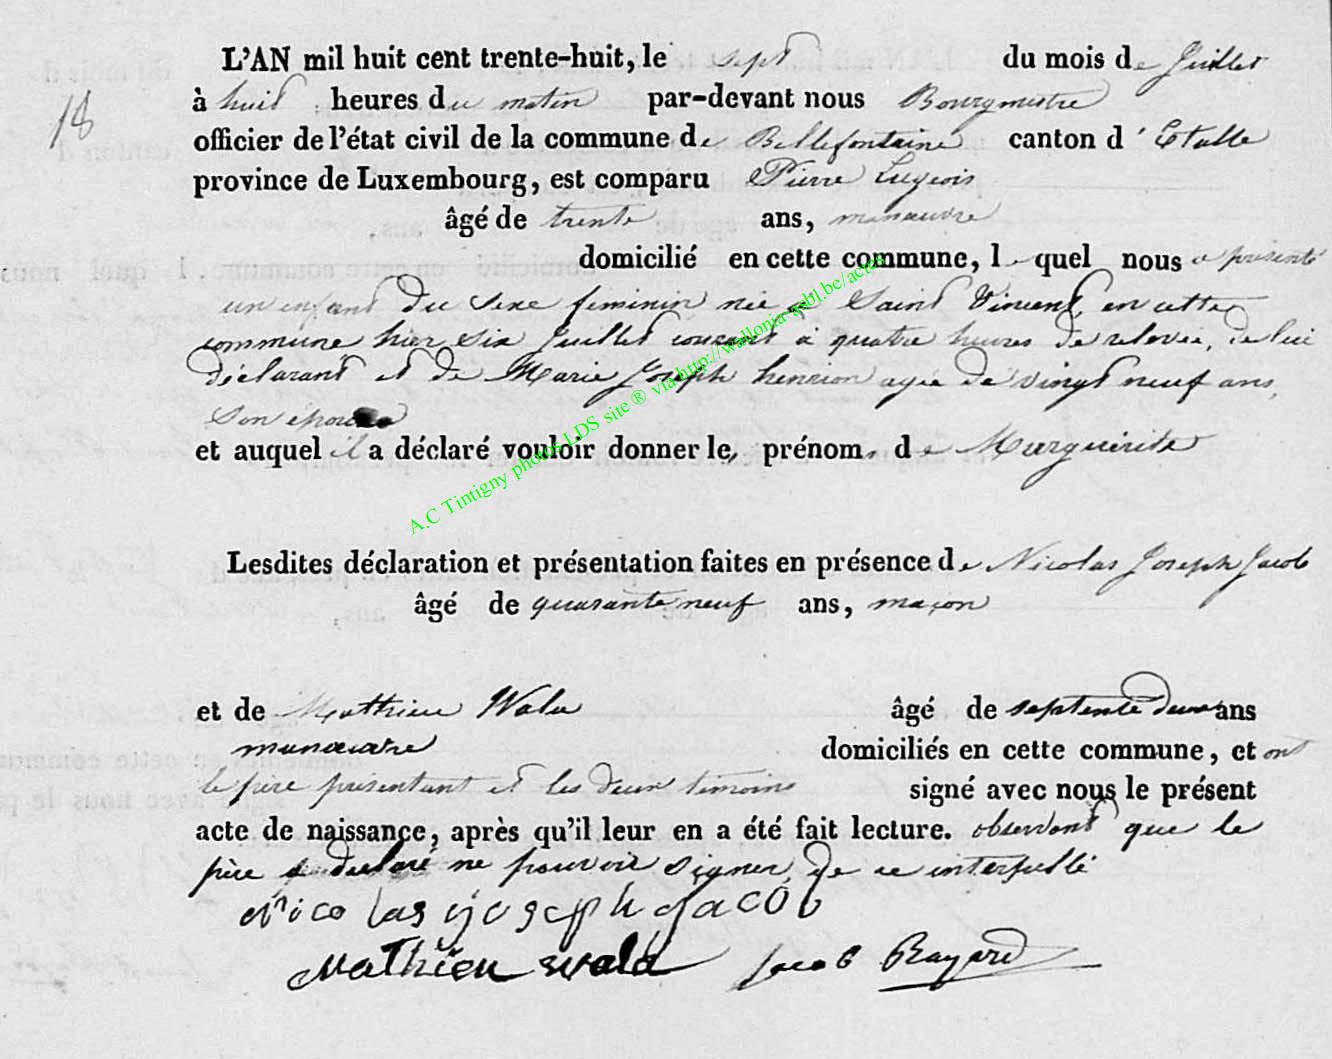 L'AN mil huit cent trente-huit, le sept du mois de Juillet
18
à huit heures du matin par-devant nous Bourgmestre
officier de l'état civil de la commune de Bellefontaine canton d'Etalle
province de Luxembourg, est comparu Pierre Lugeois
âgé de trente ans, manœuvre
domicilié en cette commune, le quel nous a présenté
un enfant du sexe feminin née à Saint Vincent, en cette
commune hier six Juillet courant à quatre heures de relevée, de lui
déclarant et de Marie Joseph henrion agée de vingt neuf ans,
son épouse
et auquel il a déclaré vouloir donner le, prénom, de Marguerite
A.C Tintigny photos LDS site ® via http://wallonia-asbl.be/actes
Lesdites déclaration et présentation faites en présence de Nicolas Joseph Jacob
âgé de quarante neuf ans, maçon
et de Mathieu Wala âgé de septente deux ans
manœuvre domiciliés en cette commune, et ont
le père présentant et les deux témoins signé avec nous le présent
acte de naissance, après qu'il leur en a été fait lecture. observant que le
père a declaré ne pouvoir signer, de ce interpellé
Nicolas Joseph Jacob
Mathieu Wala Jacob Bayard